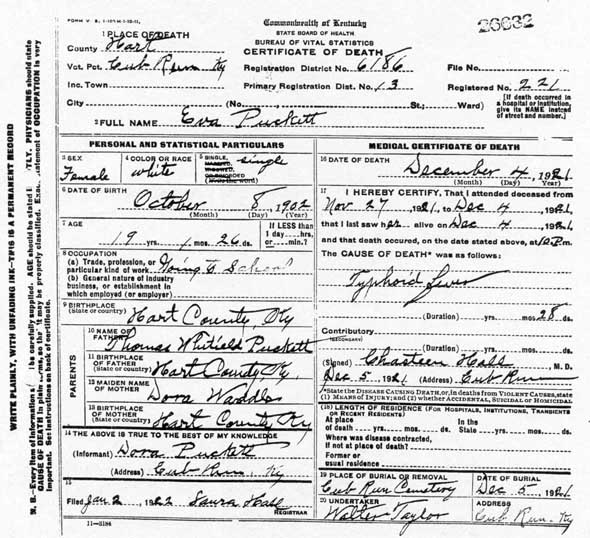 FORM V. S. 1-
26632
Commonwealth of Kentucky
STATE BOARD OF HEALTH
BUREAU OF VITAL STATISTICS
CERTIFICATE OF DEATH
1 PLACE OF DEATH
County Hart
Vot. Pct. Cub Run Ky
Inc. Town
Registration District No. 6186
File No.
Primary Registration Dist. No. 13
Registered No. 221
City (No. St.; Ward)
[If death occurred in a hospital or institution, give its NAME instead of street and number.]
2 FULL NAME Eva Puckett
PERSONAL AND STATISTICAL PARTICULARS
3 SEX Female
4 COLOR OR RACE White
5 SINGLE, MARRIED, WIDOWED, OR DIVORCED (Write the word) single
6 DATE OF BIRTH
October 8 1902
(Month) (Day) (Year)
7 AGE
19 yrs. 1 mos. 26 ds.
If LESS than 1 day hrs. or min.?
8 OCCUPATION
(a) Trade, profession, or particular kind of work Going to School
(b) General nature of industry business, or establishment in which employed (or employer)
9 BIRTHPLACE (State or country) Hart County, Ky
PARENTS
10 NAME OF FATHER Thomas Whitfield Puckett
11 BIRTHPLACE OF FATHER (State or country) Hart County Ky
12 MAIDEN NAME OF MOTHER Dora Waddle
13 BIRTHPLACE OF MOTHER (State or country) Hart County Ky
14 THE ABOVE IS TRUE TO THE BEST OF MY KNOWLEDGE
(Informant) Dora Puckett
(Address) Cub Run, Ky
15
Filed Jan 2 1922 Laura Hall
REGISTRAR
11-3184
MEDICAL CERTIFICATE OF DEATH
16 DATE OF DEATH
December 4, 1921
(Month) (Day) (Year)
17 I HEREBY CERTIFY, That I attended deceased from
Nov 27, 1921, to Dec 4, 1921
that I last saw her alive on Dec 4, 1921
and that death occured, on the date stated above, at 12 P.m.
The CAUSE OF DEATH* was as follows:
Typhoid Fever
(Duration) yrs. mos. 28 ds.
Contributory
(SECONDARY)
(Duration) yrs. mos. ds.
(Signed) Chasteen Hall M. D.
Dec 5, 1921 (Address) Cub Run
*State the DISEASE CAUSING DEATH, or, in deaths from VIOLENT CAUSES, state (1) MEANS OF INJURY; and (2) whether ACCIDENTAL, SUICIDAL or HOMICIDAL
18 LENGTH OF RESIDENCE (FOR HOSPITALS, INSTITUTIONS, TRANSIENTS OR RECENT RESIDENTS)
At place of death yrs. mos. ds. In the State yrs. mos. ds.
Where was disease contracted, if not at place of death?
Former or usual residence
19 PLACE OF BURIAL OR REMOVAL
Cub Run Cemetery
DATE OF BURIAL
Dec 5, 1921
20 UNDERTAKER
Walter Taylor
ADDRESS
Cub Run Ky
WRITE PLAINLY, WITH UNFADING INK—THIS IS A PERMANENT RECORD
N. B.—Every item of information carefully supplied. AGE should be stated PHYSICIANS should state
CAUSE OF DEATH in plain so that it may be properly classified. statement of OCCUPATION is very
important. See instructions on back of certificate.